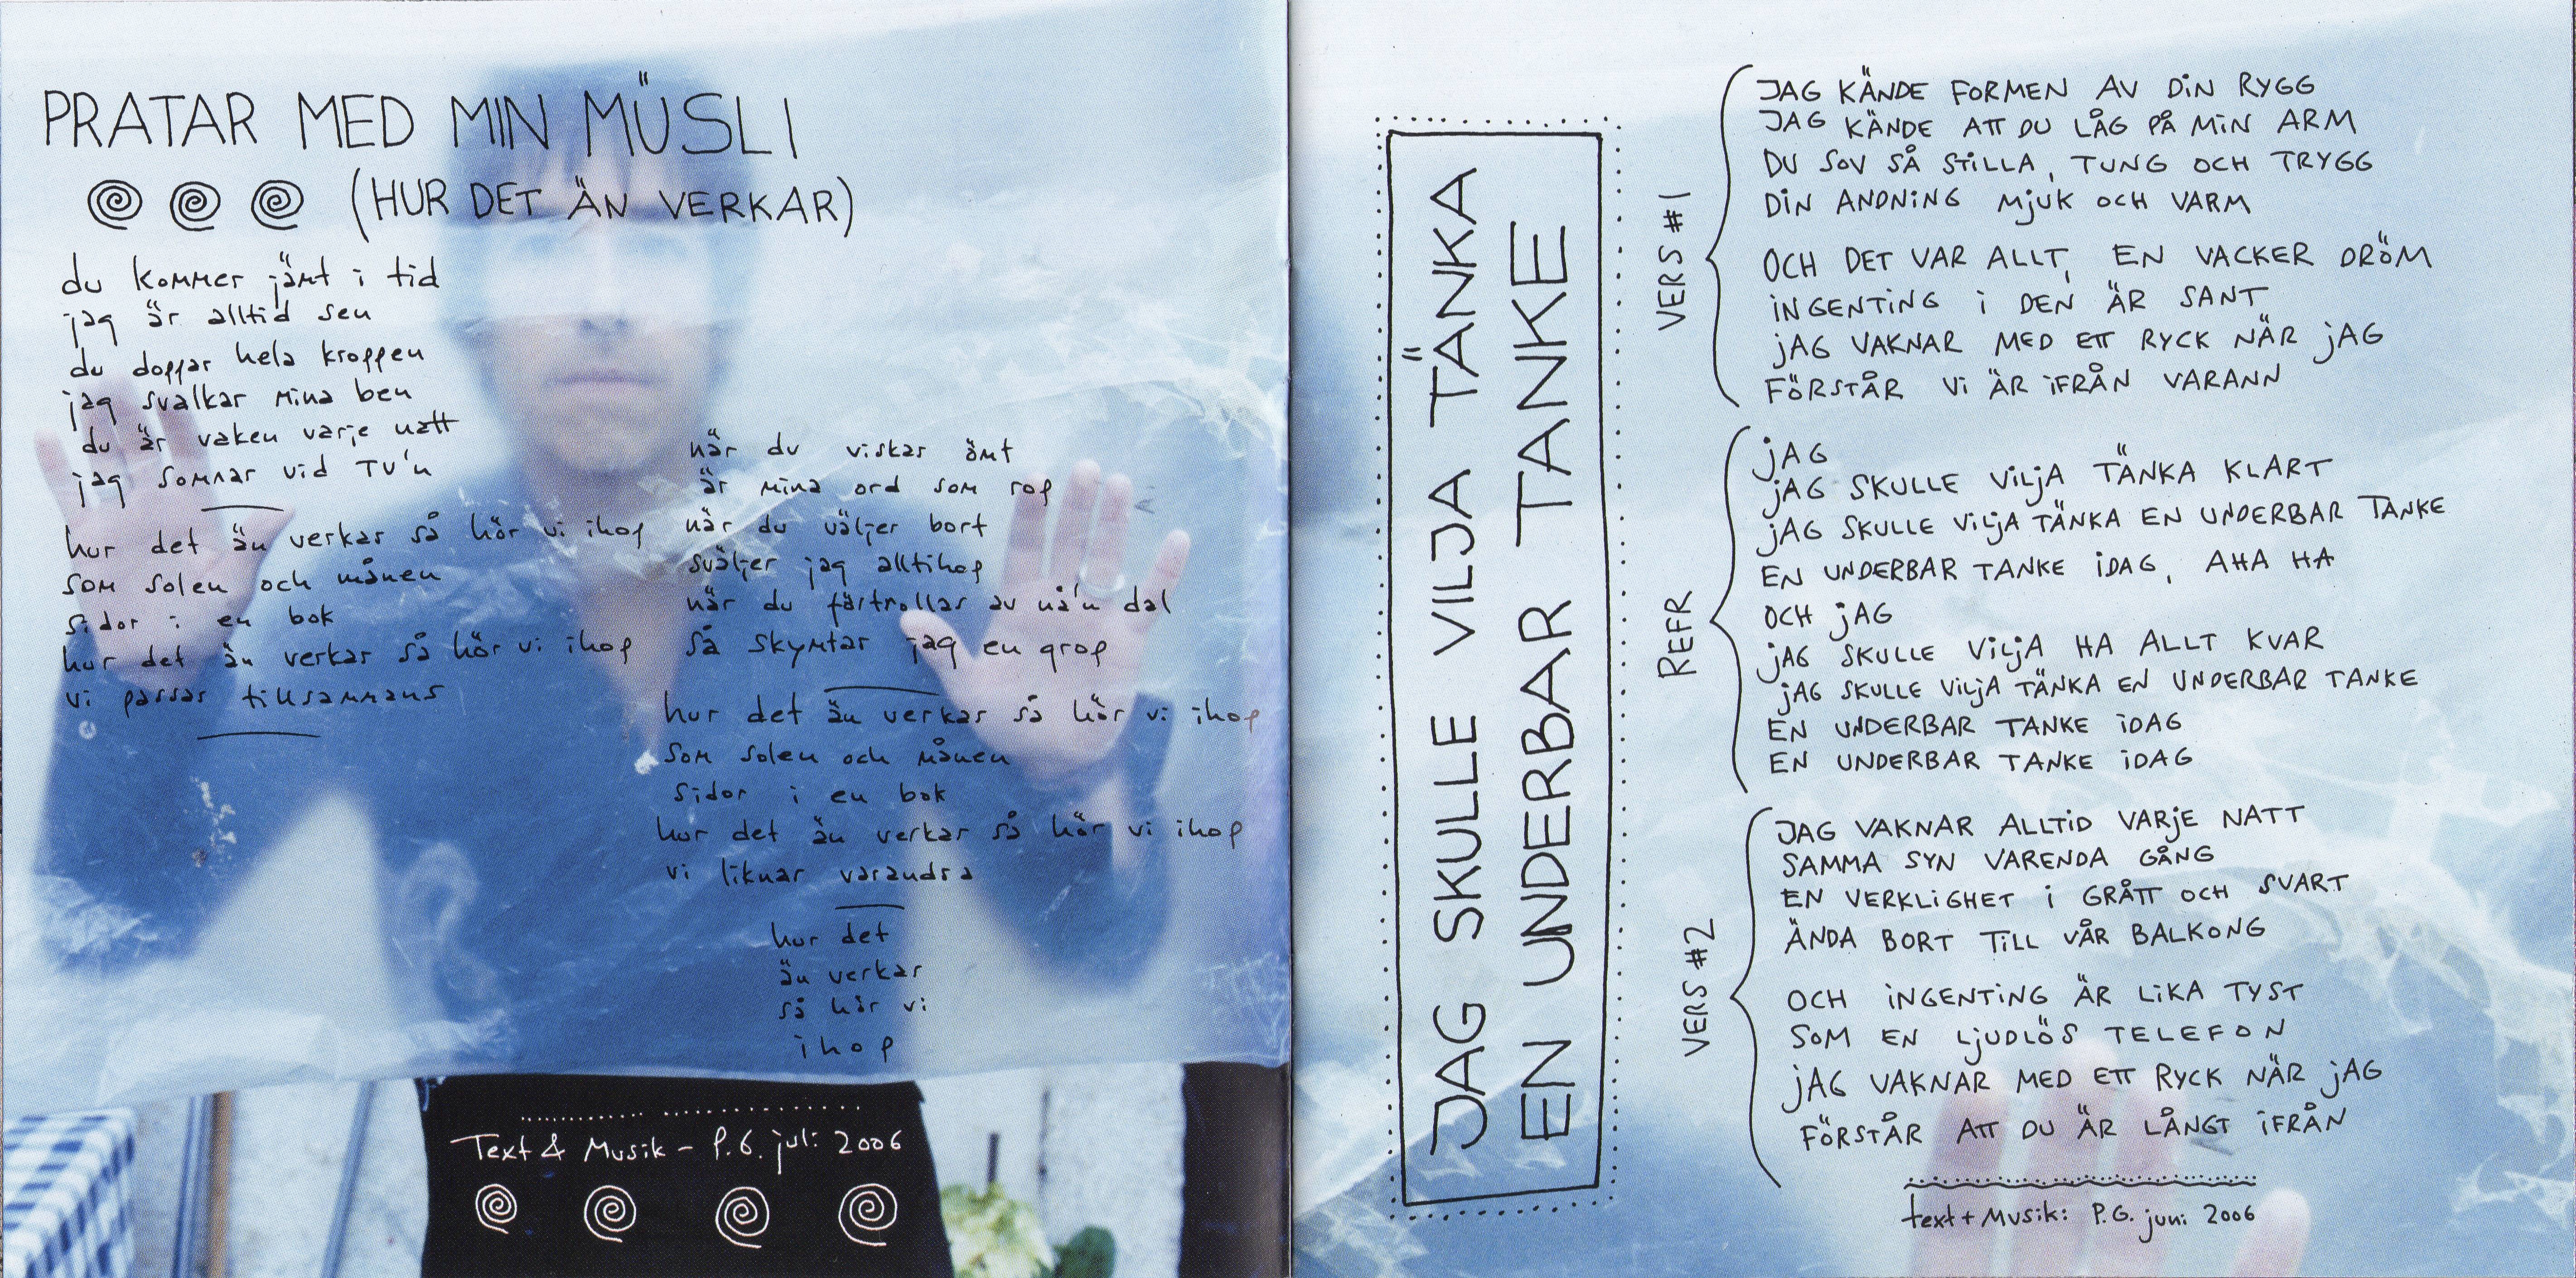 PRATAR MED MIN MÜSLI
(HUR DET ÄN VERKAR)
du kommer jämt i tid
jag är alltid sen
du doppar hela kroppen
jag svalkar mina ben
du är vaken varje natt
jag somnar vid TV'n
hur det än verkar så hör vi ihop
som solen och månen
sidor i en bok
hur det än verkar så hör vi ihop
vi passar tillsammans
när du viskar ömt
är mina ord som rop
när du väljer bort
sväljer jag alltihop
när du förtrollas av nå'n dal
så skymtar jag en grop
hur det än verkar så hör vi ihop
som solen och månen
sidor i en bok
hur det än verkar så hör vi ihop
vi liknar varandra
hur det
än verkar
så hör vi
ihop
Text & Musik – P.G. juli 2006
JAG SKULLE VILJA TÄNKA
EN UNDERBAR TANKE
VERS #1
JAG KÄNDE FORMEN AV DIN RYGG
JAG KÄNDE ATT DU LÅG PÅ MIN ARM
DU SOV SÅ STILLA, TUNG OCH TRYGG
DIN ANDNING MJUK OCH VARM
OCH DET VAR ALLT, EN VACKER DRÖM
INGENTING I DEN ÄR SANT
JAG VAKNAR MED ETT RYCK NÄR JAG
FÖRSTÅR VI ÄR IFRÅN VARANN
REFR
JAG
JAG SKULLE VILJA TÄNKA KLART
JAG SKULLE VILJA TÄNKA EN UNDERBAR TANKE
EN UNDERBAR TANKE IDAG, AHA HA
OCH JAG
JAG SKULLE VILJA HA ALLT KVAR
JAG SKULLE VILJA TÄNKA EN UNDERBAR TANKE
EN UNDERBAR TANKE IDAG
EN UNDERBAR TANKE IDAG
VERS #2
JAG VAKNAR ALLTID VARJE NATT
SAMMA SYN VARENDA GÅNG
EN VERKLIGHET I GRÅTT OCH SVART
ÄNDA BORT TILL VÅR BALKONG
OCH INGENTING ÄR LIKA TYST
SOM EN LJUDLÖS TELEFON
JAG VAKNAR MED ETT RYCK NÄR JAG
FÖRSTÅR ATT DU ÄR LÅNGT IFRÅN
text + Musik: P.G. juni 2006